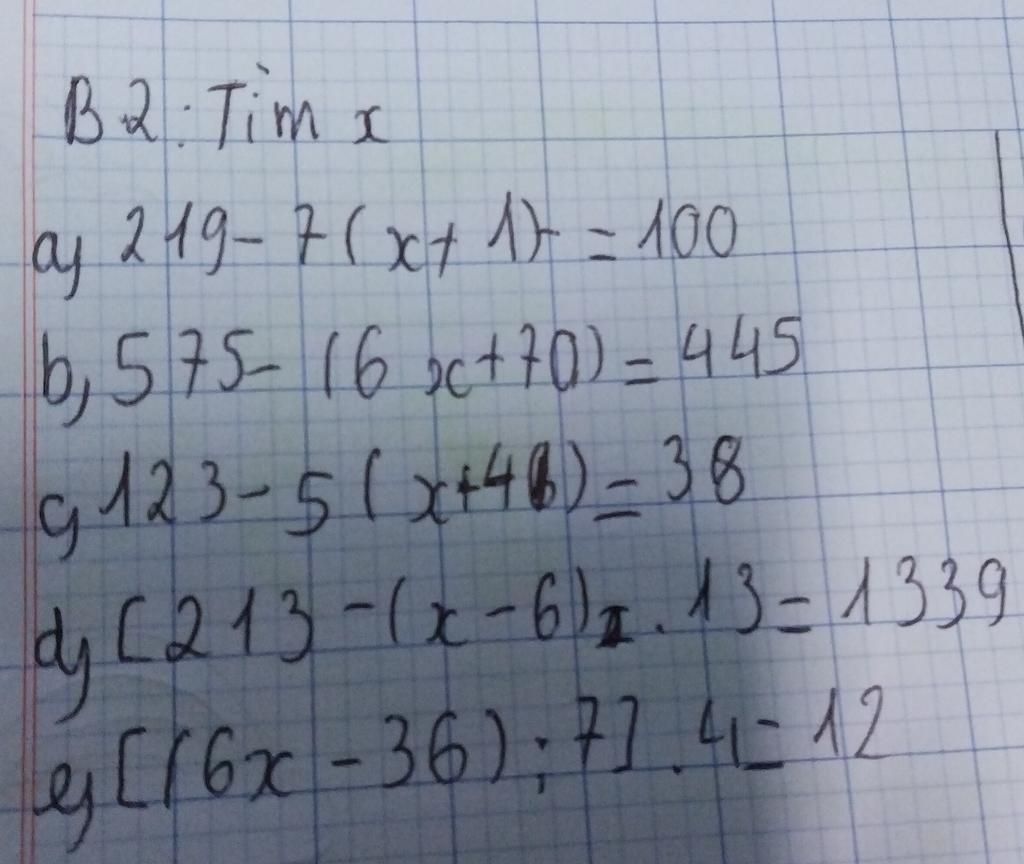 B2: Tìm x
a, 219 - 7(x + 1) = 100
b, 575 - (6x + 70) = 445
c, 123 - 5(x + 4) = 38
d, [213 - (x - 6)] . 13 = 1339
e, [(6x - 36) : 7] . 4 = 12